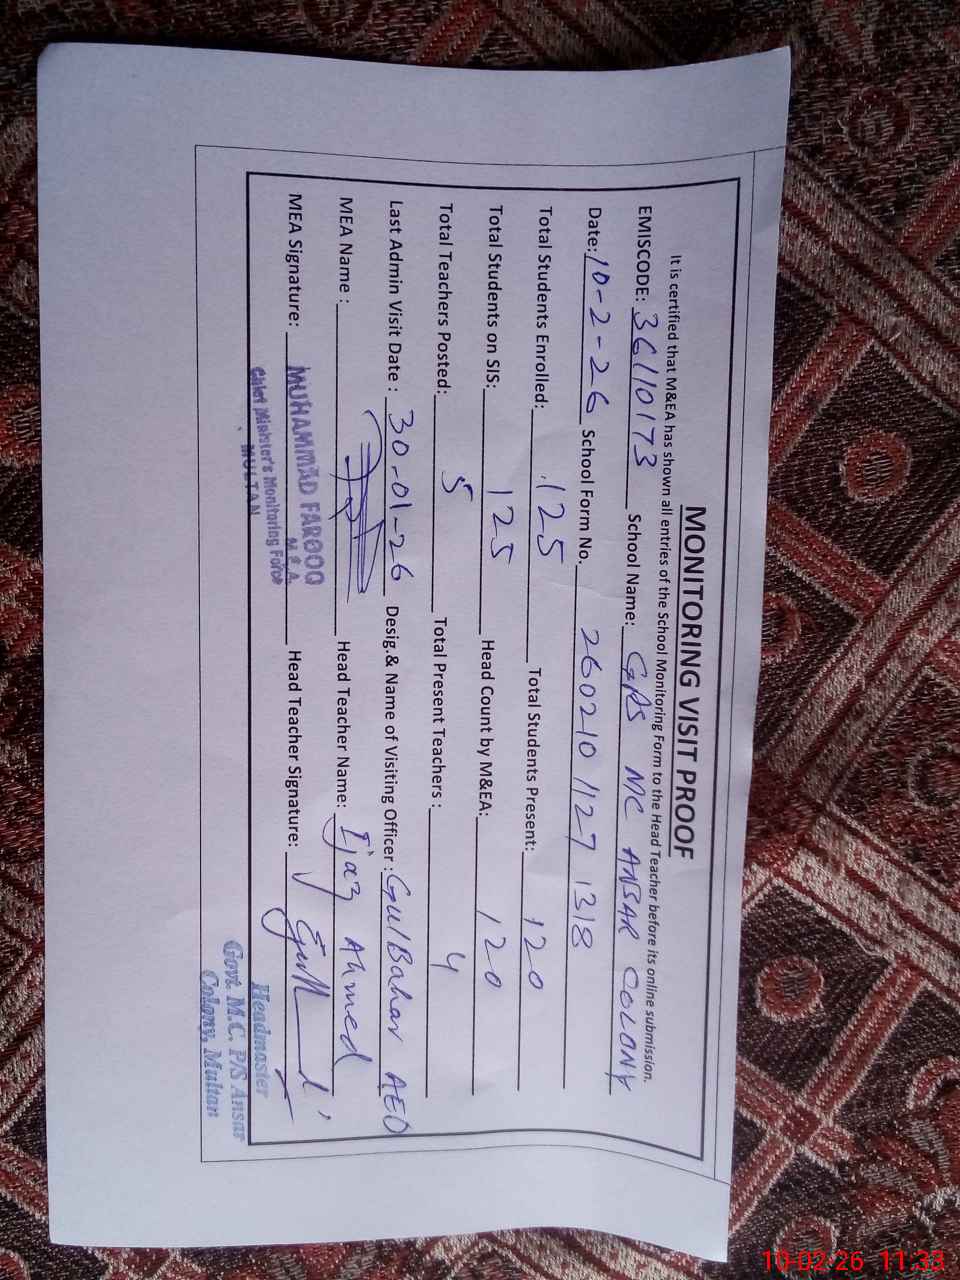 MONITORING VISIT PROOF
It is certified that M&EA has shown all entries of the School Monitoring Form to the Head Teacher before its online submission.
EMISCODE: 36110173 School Name: GPS MC ANSAR COLONY
Date: 10-2-26 School Form No. 2602101127 1318
Total Students Enrolled: 125 Total Students Present: 120
Total Students on SIS: 125 Head Count by M&EA: 120
Total Teachers Posted: 5 Total Present Teachers : 4
Last Admin Visit Date : 30-01-26 Desig.& Name of Visiting Officer : Gul Bahar AEO
MEA Name : Head Teacher Name: Ijaz Ahmed
MEA Signature: Head Teacher Signature:
MUHAMMAD FAROOQ
M.E.A.
Chief Minister's Monitoring Force
MULTAN
Headmaster
Govt. M.C. P/S Ansar
Colony, Multan
10-02-26 11:33